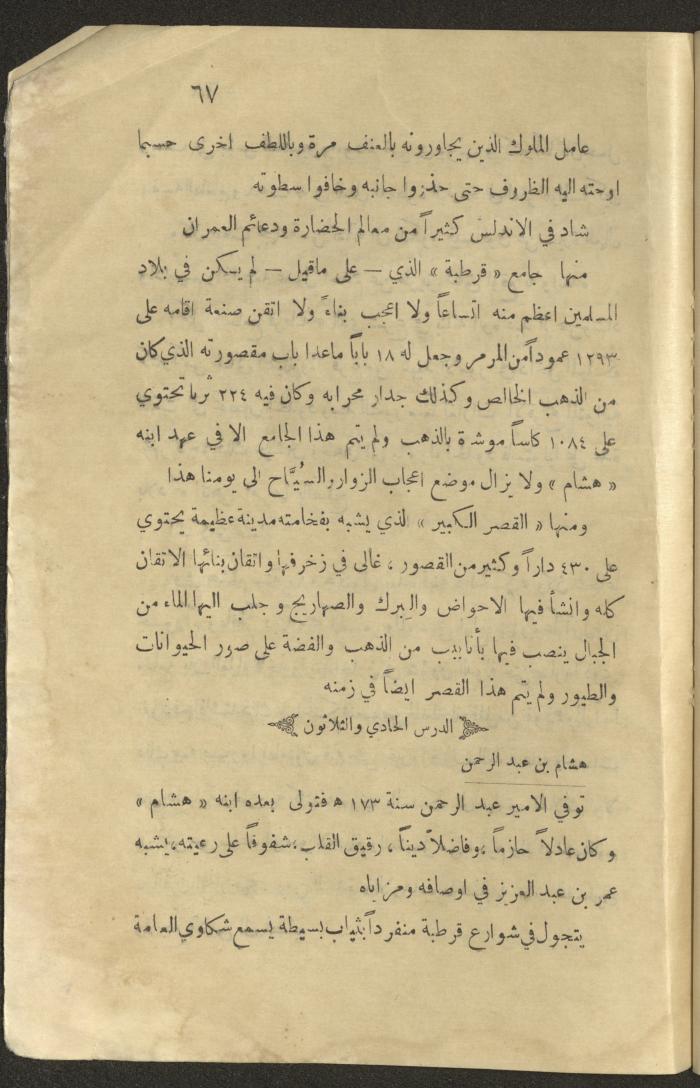 ٦٧
عامل الملوك الذين يجاورونه بالعنف مرة وباللطف اخرى حسبما
اوحته اليه الظروف حتى حذروا جانبه وخافوا سطوته
شاد في الاندلس كثيراً من معالم الحضارة ودعائم العمران
منها جامع « قرطبة » الذي — على ماقيل — لم يكن في بلاد
المسلمين اعظم منه اتساعاً ولا اعجب بناءً ولا اتقن صنعة اقامه على
١٢٩٣ عموداً من المرمر وجعل له ١٨ باباً ماعدا باب مقصورته الذي كان
من الذهب الخالص وكذلك جدار محرابه وكان فيه ٢٢٤ ثريا تحتوي
على ١٠٨٤ كاساً موشاة بالذهب ولم يتم هذا الجامع الا في عهد ابنه
« هشام » ولا يزال موضع اعجاب الزوار والسُيَّاح الى يومنا هذا
ومنها « القصر الكبير » الذي يشبه بفخامته مدينة عظيمة يحتوي
على ٤٣٠ داراً وكثير من القصور ، غالى في زخرفها واتقان بنائها الاتقان
كله وانشأ فيها الاحواض والبِرك والصهاريج وجلب اليها الماء من
الجبال ينصب فيها بأنابيب من الذهب والفضة على صور الحيوانات
والطيور ولم يتم هذا القصر ايضاً في زمنه
الدرس الحادي والثلاثون
هشام بن عبد الرحمن
توفي الامير عبد الرحمن سنة ١٧٣ ه فتولى بعده ابنه « هشام »
وكان عادلاً حازماً ، وفاضلاً ديناً ، رقيق القلب ، شفوقاً على رعيته ، يشبه
عمر بن عبد العزيز في اوصافه ومزاياه
يتجول في شوارع قرطبة منفرداً بثياب بسيطة يسمع شكاوي العامة